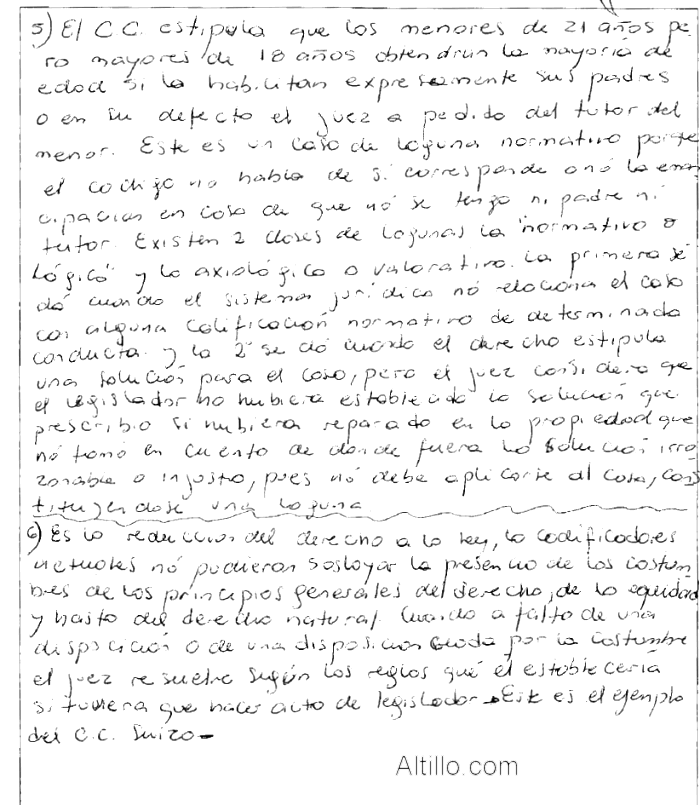 5) El C.C. estipula que los menores de 21 años pe
ro mayores de 18 años obtendrán la mayoría de
edad si la habilitan expresamente sus padres
o en su defecto el juez a pedido del tutor del
menor. Este es un caso de laguna normativa porque
el codigo no habla de si corresponde o nó la eman
cipacion en caso de que nó se tenga ni padre ni
tutor. Existen 2 clases de lagunas la "normativa o
Lógica" y la axiológica o valorativa. La primera se
dá cuando el sistema jurídico nó relaciona el caso
con alguna calificación normativa de determinada
conducta. y la 2º se dá cuando el derecho estipula
una solución para el caso, pero el juez considera que
el legislador no hubiera establecido la solución que
prescribio si hubiera reparado en la propiedad que
nó tomó en cuenta de donde fuera la solucion irra
zonable o injusta, pues nó debe aplicarse al caso, cons
tituyendose una laguna
6) Es la reduccion del derecho a la ley, lo codificadores
actuales nó pudieron soslayar la presencia de las costum
bres de los principios generales del derecho, de la equidad
y hasta del derecho natural. Cuando a falta de una
disposición o de una disposicion dada por la costumbre
el juez resuelve según las reglas que él establecería
si tuviera que hacer acto de legislador. Este es el ejemplo
del C.C. Suizo-
Altillo.com